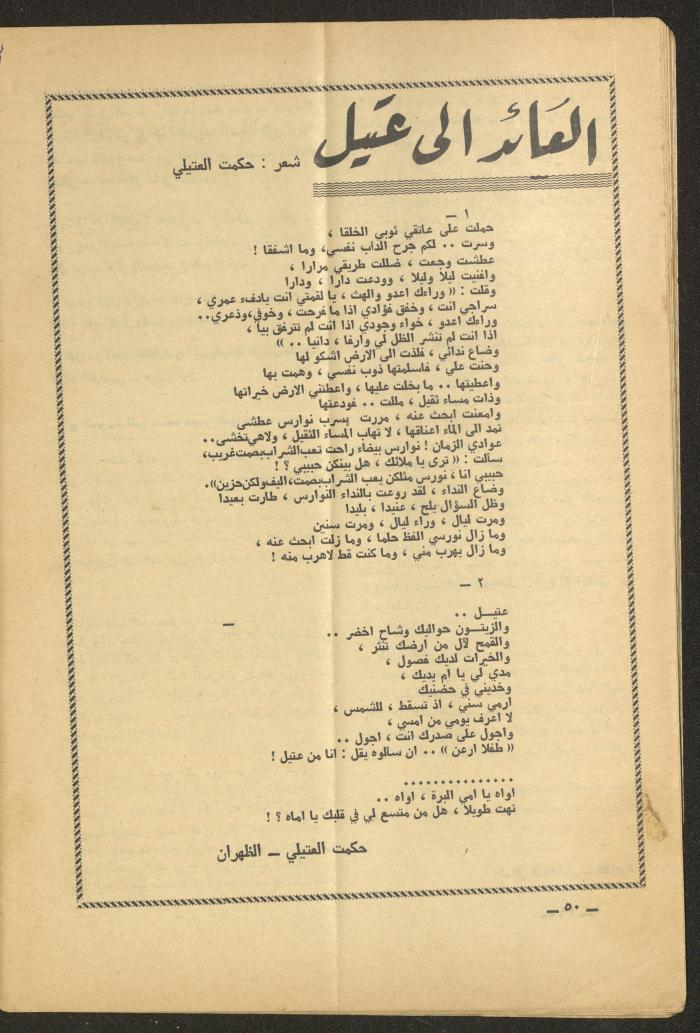 العائد الى عتيل
شعر : حكمت العتيلي
١ ـ
حملت على عاتقي ثوبي الخلقا ،
وسرت .. لكم جرح الداب نفسي، وما اشفقا !
عطشت وجعت ، ضللت طريقي مرارا ،
وافنيت ليلا وليلا ، وودعت دارا ، ودارا
وقلت : (( وراءك اعدو والهث ، يا لقمتي انت يادفء عمري ،
سراجي انت ، وخفق فؤادي اذا ما فرحت ، وخوفي،وذعري..
وراءك اعدو ، خواء وجودي اذا انت لم تترفق بيا ،
اذا انت لم تنشر الظل لي وارفا ، دانيا .. ))
وضاع ندائي ، فلذت الى الارض اشكو لها
وحنت علي ، فاسلمتها ذوب نفسي ، وهمت بها
واعطيتها .. ما بخلت عليها ، واعطتني الارض خيراتها
وذات مساء ثقيل ، مللت .. فودعتها
وامعنت ابحث عنه ، مررت بسرب نوارس عطشى
تمد الى الماء اعناقها ، لا تهاب المساء الثقيل ، ولاهي تخشى..
عوادي الزمان ! نوارس بيضاء راحت تعب الشراب بصمت غريب،
سألت : (( ترى يا ملائك ، هل بينكن حبيبي ؟ !
حبيبي انا ، نورس مثلكن يعب الشراب بصمت،اليف ولكن حزين)).
وضاع النداء ، لقد روعت بالنداء النوارس ، طارت بعيدا
وظل السؤال يلح ، عنيدا ، بليدا
ومرت ليال ، وراء ليال ، ومرت سنين
وما زال نورسي الفظ حلما ، وما زلت ابحث عنه ،
وما زال يهرب مني ، وما كنت قط لاهرب منه !
٢ ـ
عتيـل ..
والزيتـون حواليك وشاح اخضر ..
والقمح لآل من ارضك تنثر ،
والخيرات لديك فصول ،
مدي لي يا ام يديك ،
وخذيني في حضنيك
ارمي سني ، اذ تسقط ، للشمس ،
لا اعرف يومي من امسي ،
واجول على صدرك انت ، اجول ..
(( طفلا ارعن )) .. ان سالوه يقل : انا من عتيل !
...............
اواه يا امي البرة ، اواه ..
تهت طويلا ، هل من متسع لي في قلبك يا اماه ؟ !
حكمت العتيلي ـ الظهران
ـ ٥٠ ـ